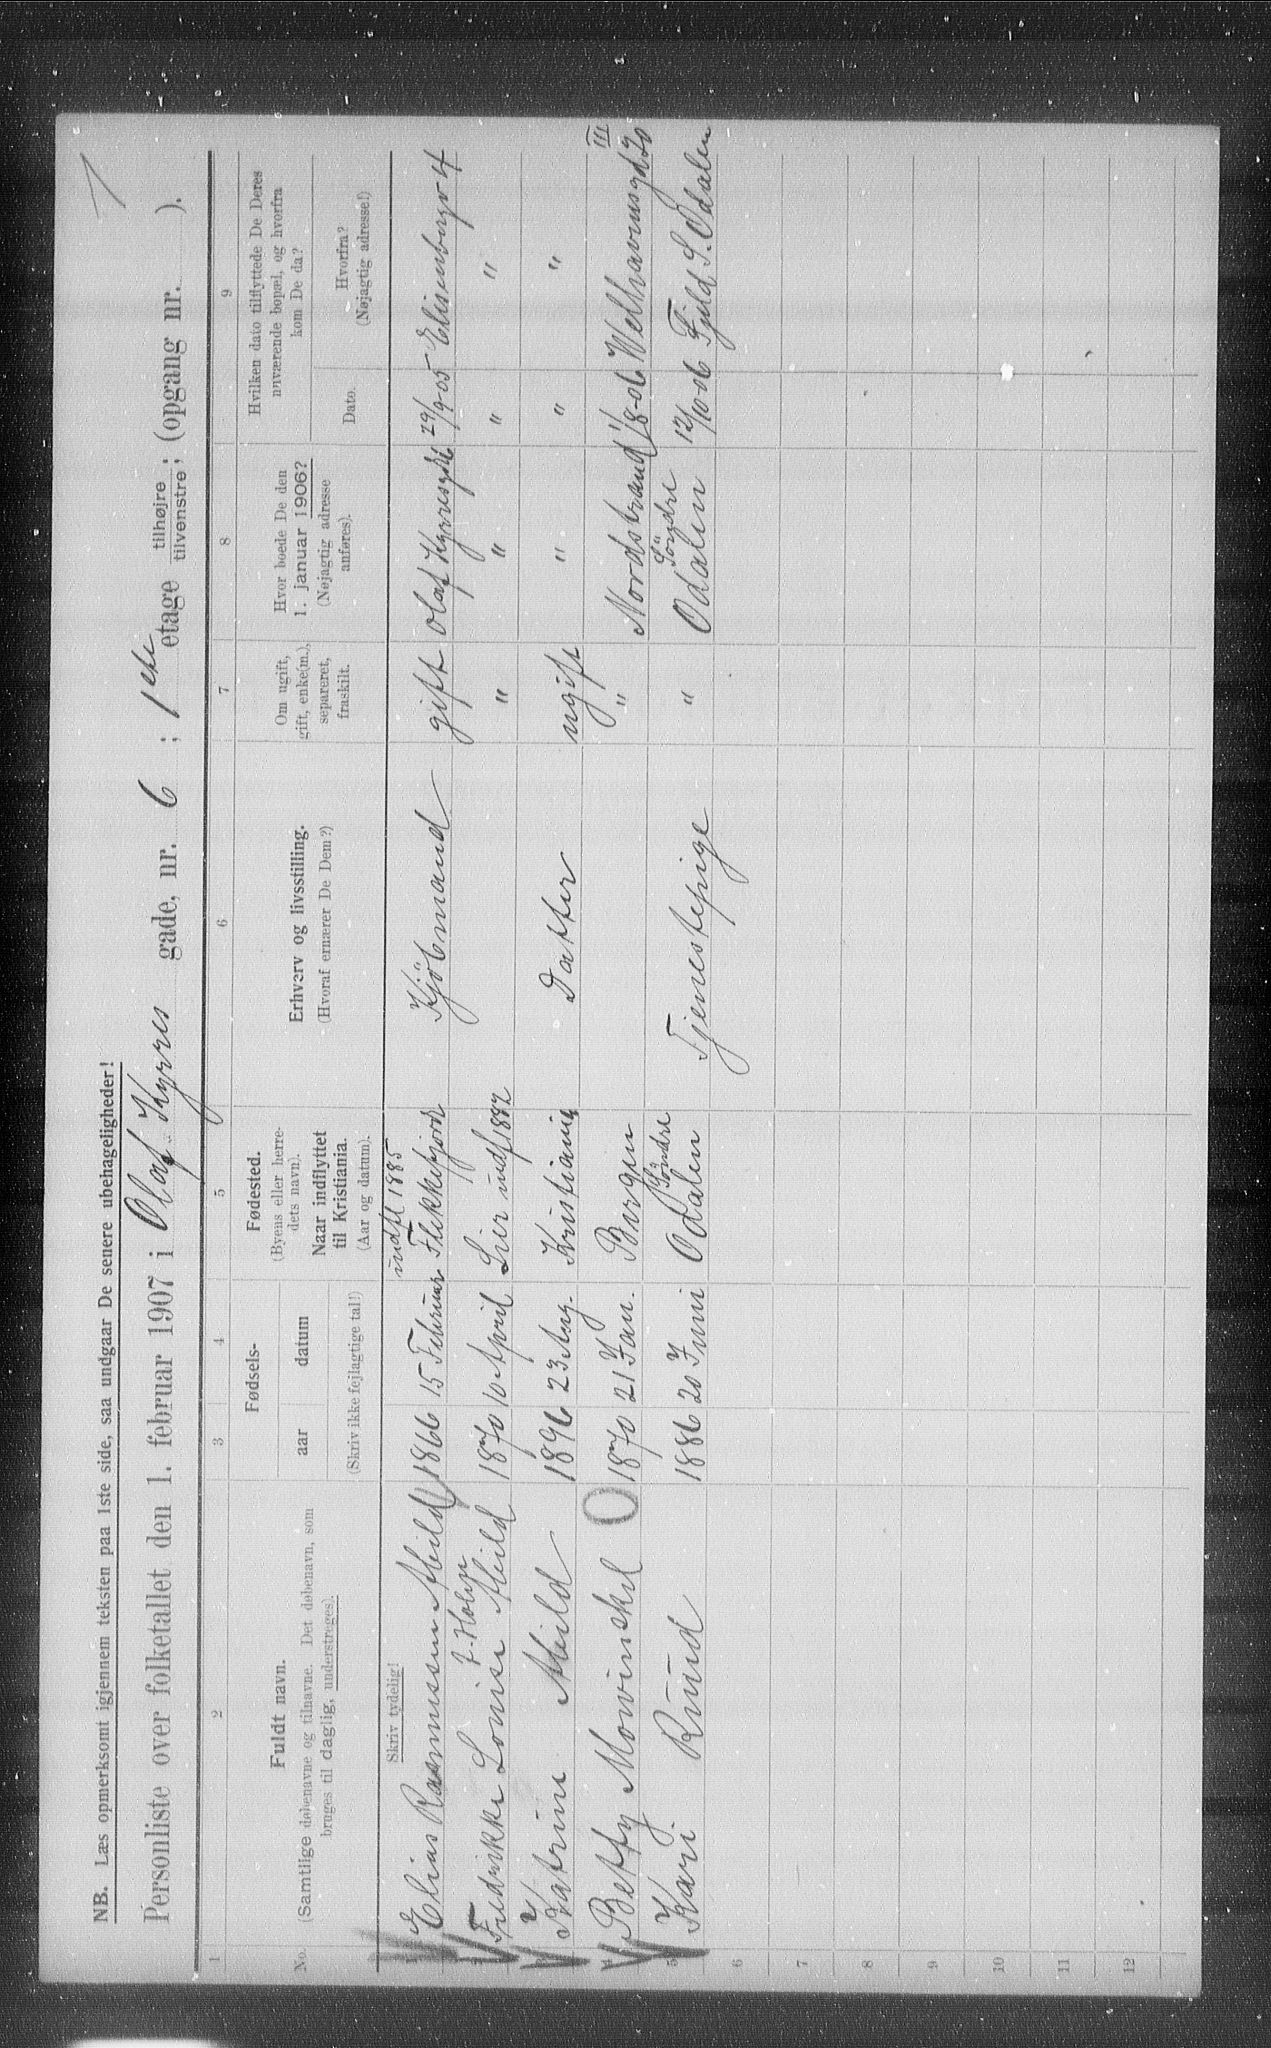 NB. Læs opmerksomt igjennem teksten paa 1ste side, saa undgaar De senere ubehageligheder!
Personliste over folketallet den 1. februar 1907 i Olaf Kyrres gade, nr. 6 ; 1ste etage tilhøjre tilvenstre ; (opgang nr. ).
1 2 3 4 5 6 7 8 9
No. Fuldt navn. (Samtlige døbenavne og tilnavne. Det døbenavn, som bruges til daglig, understreges).
Fødsels-
aar datum
(Skriv ikke fejlagtige tal!)
Fødested. (Byens eller herredets navn). Naar indflyttet til Kristiania. (Aar og datum).
Erhverv og livsstilling. (Hvoraf ernærer De Dem?)
Om ugift, gift, enke(m.), separeret, fraskilt.
Hvor boede De den 1. januar 1906? (Nøjagtig adresse anføres).
Hvilken dato tilflyttede De Deres nuværende bopæl, og hvorfra kom De da?
Dato. Hvorfra? (Nøjagtig adresse!)
Skriv tydelig!
1 Elias Rasmussen Abild 1866 15 Februar Flekkefjord indfl 1885 Kjöbmand gift Olaf Kyrresgd 6 29/9-05 Elisenbergv 4
2 Fredrikke Louise Abild f. Holyer 1870 10 April Lier indf 1882 " " " "
3 Katrine Abild 1896 23 Aug. Kristiania Datter ugift " " "
4 Betty Mowinckel 1870 21 Jan. Bergen " Nordstrand 1/8-06 Welhavensgd 20 III
5 Kari Ruud 1886 20 Juni Söndre Odalen Tjenestepige " Söndre Odalen 12/10-06 Fjeld S. Odalen
6
7
8
9
10
11
12